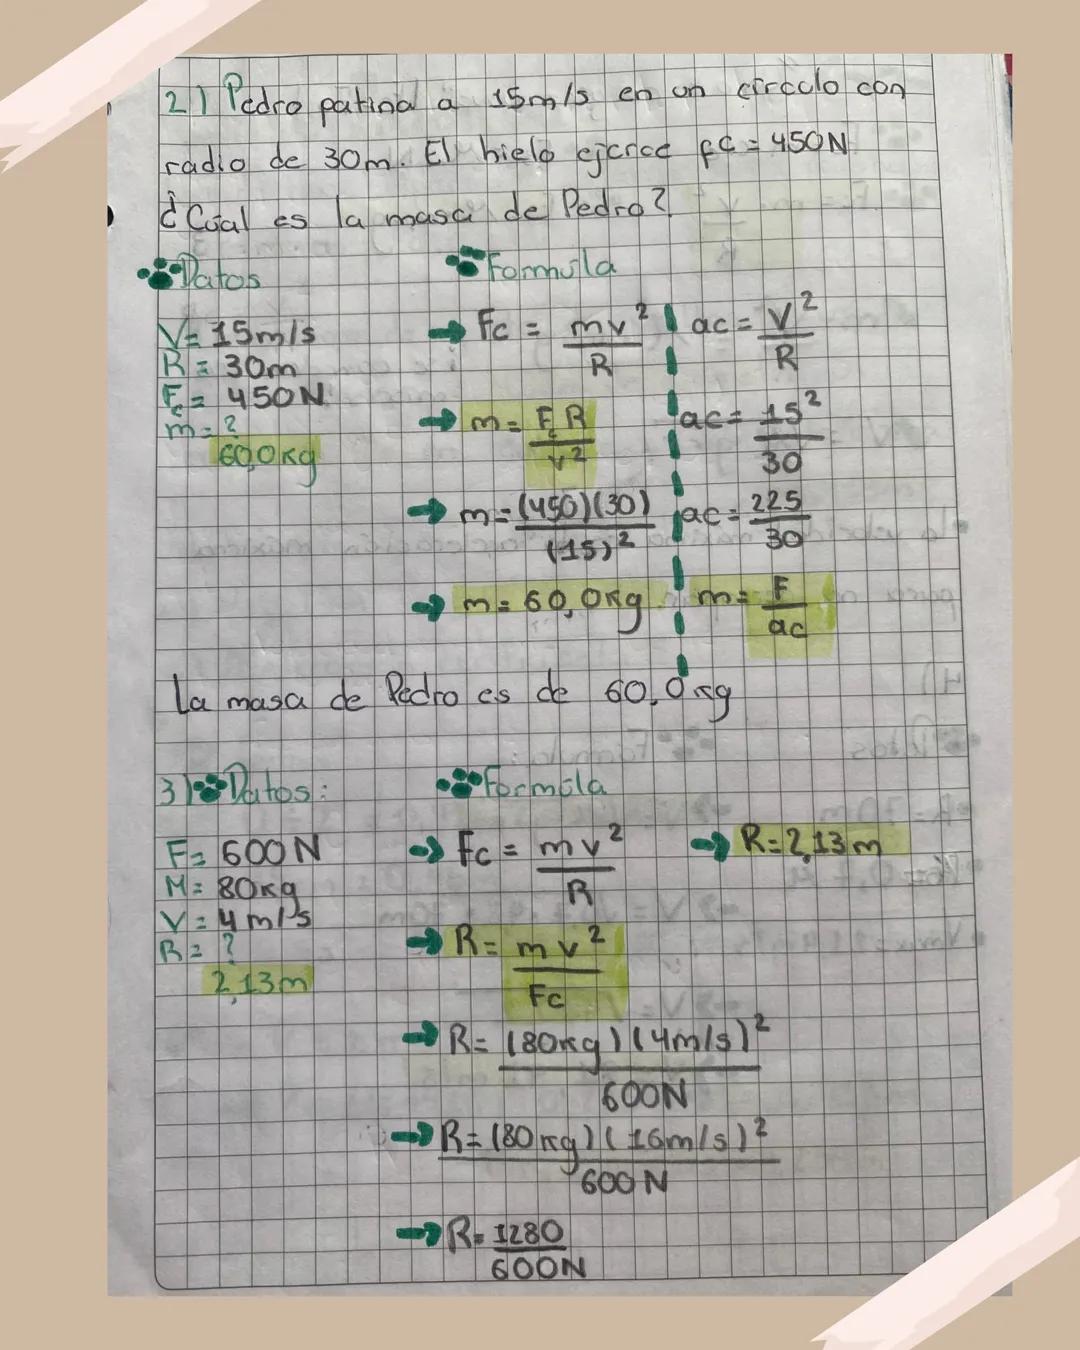 2) Pedro patina a 15m/s en un circulo con
radio de 30m. El hielo ejerce fc = 450N
¿Cúal es la masa de Pedro?
Datos
V= 15m/s
R= 30m
Fc= 450N
m=?
60,0kg
Formula
→ Fc = mv²/R
→ m= Fc R/v²
→ m= (450)(30)/(15)²
→ m= 60,0kg
ac= V²/R
ac= 15²/30
ac= 225/30
m= F/ac
La masa de Pedro es de 60,0kg
3) Datos:
F= 600N
M= 80kg
V= 4m/s
R= ?
2,13m
Formula
→ Fc = mv²/R
→ R= mv²/Fc
→ R= (80kg)(4m/s)²/600N
→ R= (80kg)(16m/s)²/600N
→ R= 1280/600N
→ R= 2,13m